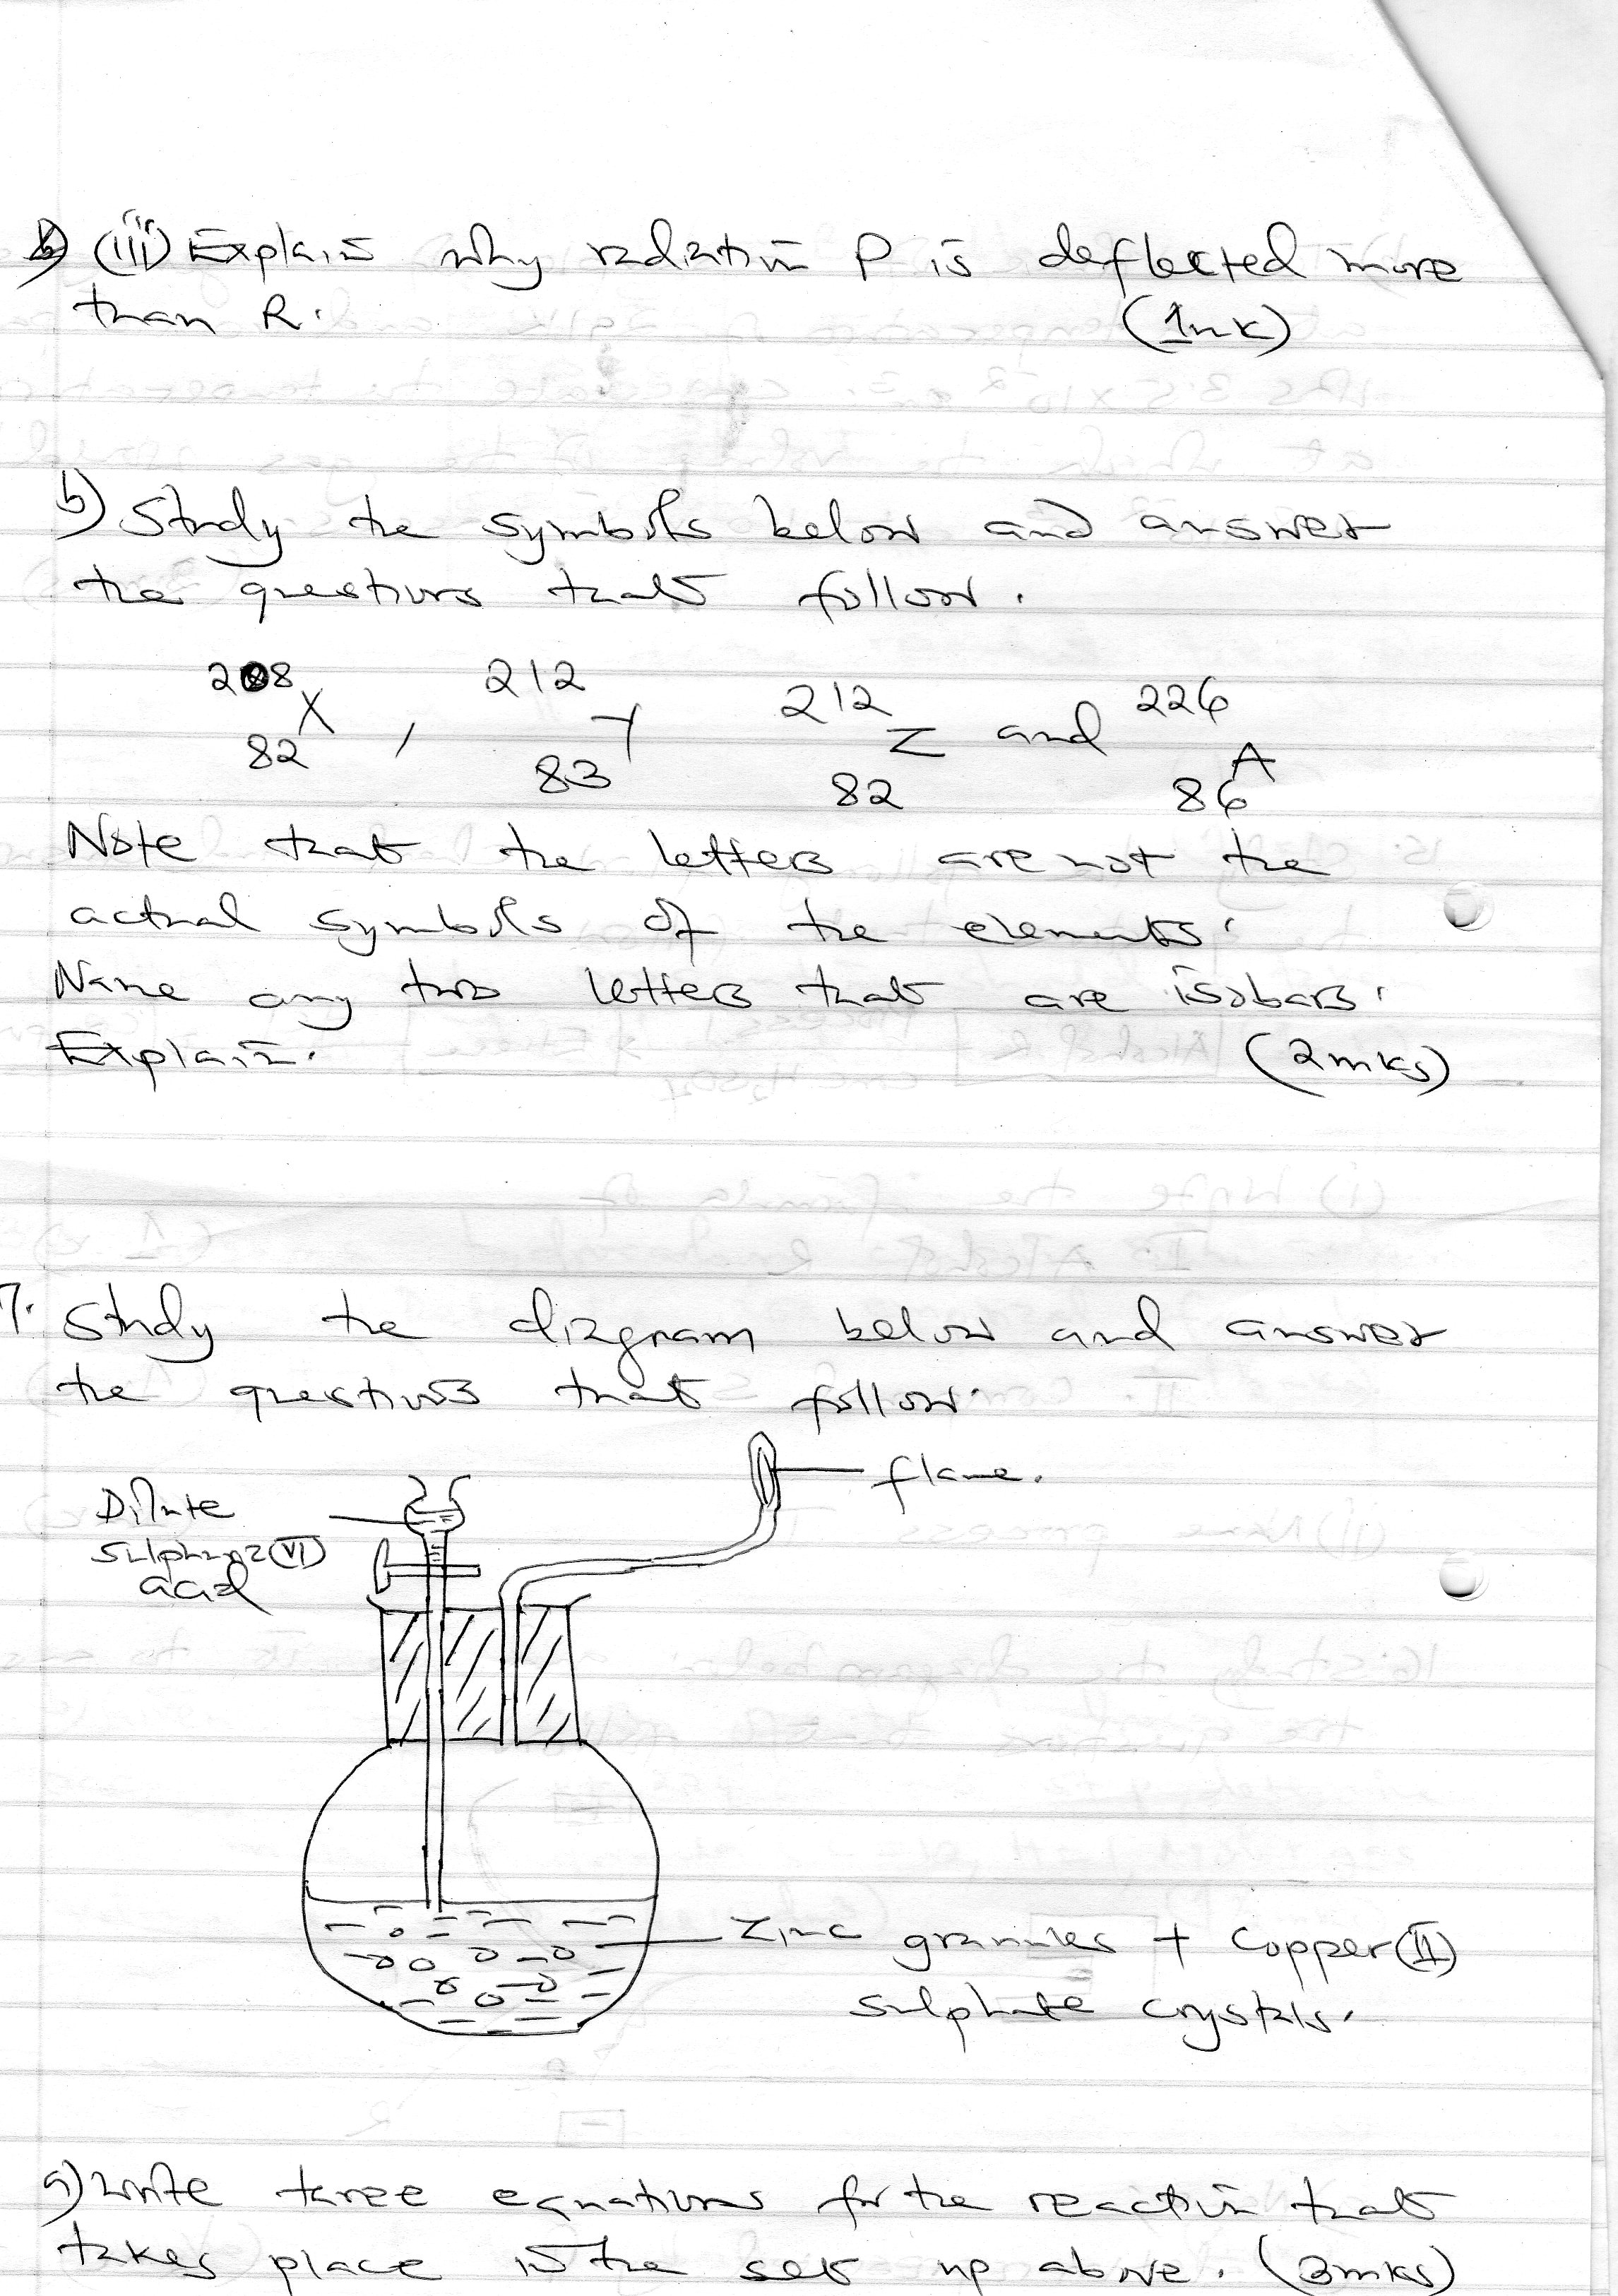 (iii) Explain why radiation P is deflected more
than R. (1mk)
b) Study the symbols below and answer
the questions that follow.
208 212 212 226
X , Y Z and A
82 83 82 86
Note that the letters are not the
actual symbols of the elements.
Name any two letters that are isobars.
Explain. (2mks)
7. Study the diagram below and answer
the questions that follow.
flame.
Dilute
sulphuric (VI)
acid
Zinc granules + Copper (II)
sulphate crystals.
a) Write three equations for the reaction that
takes place in the set up above. (3mks)